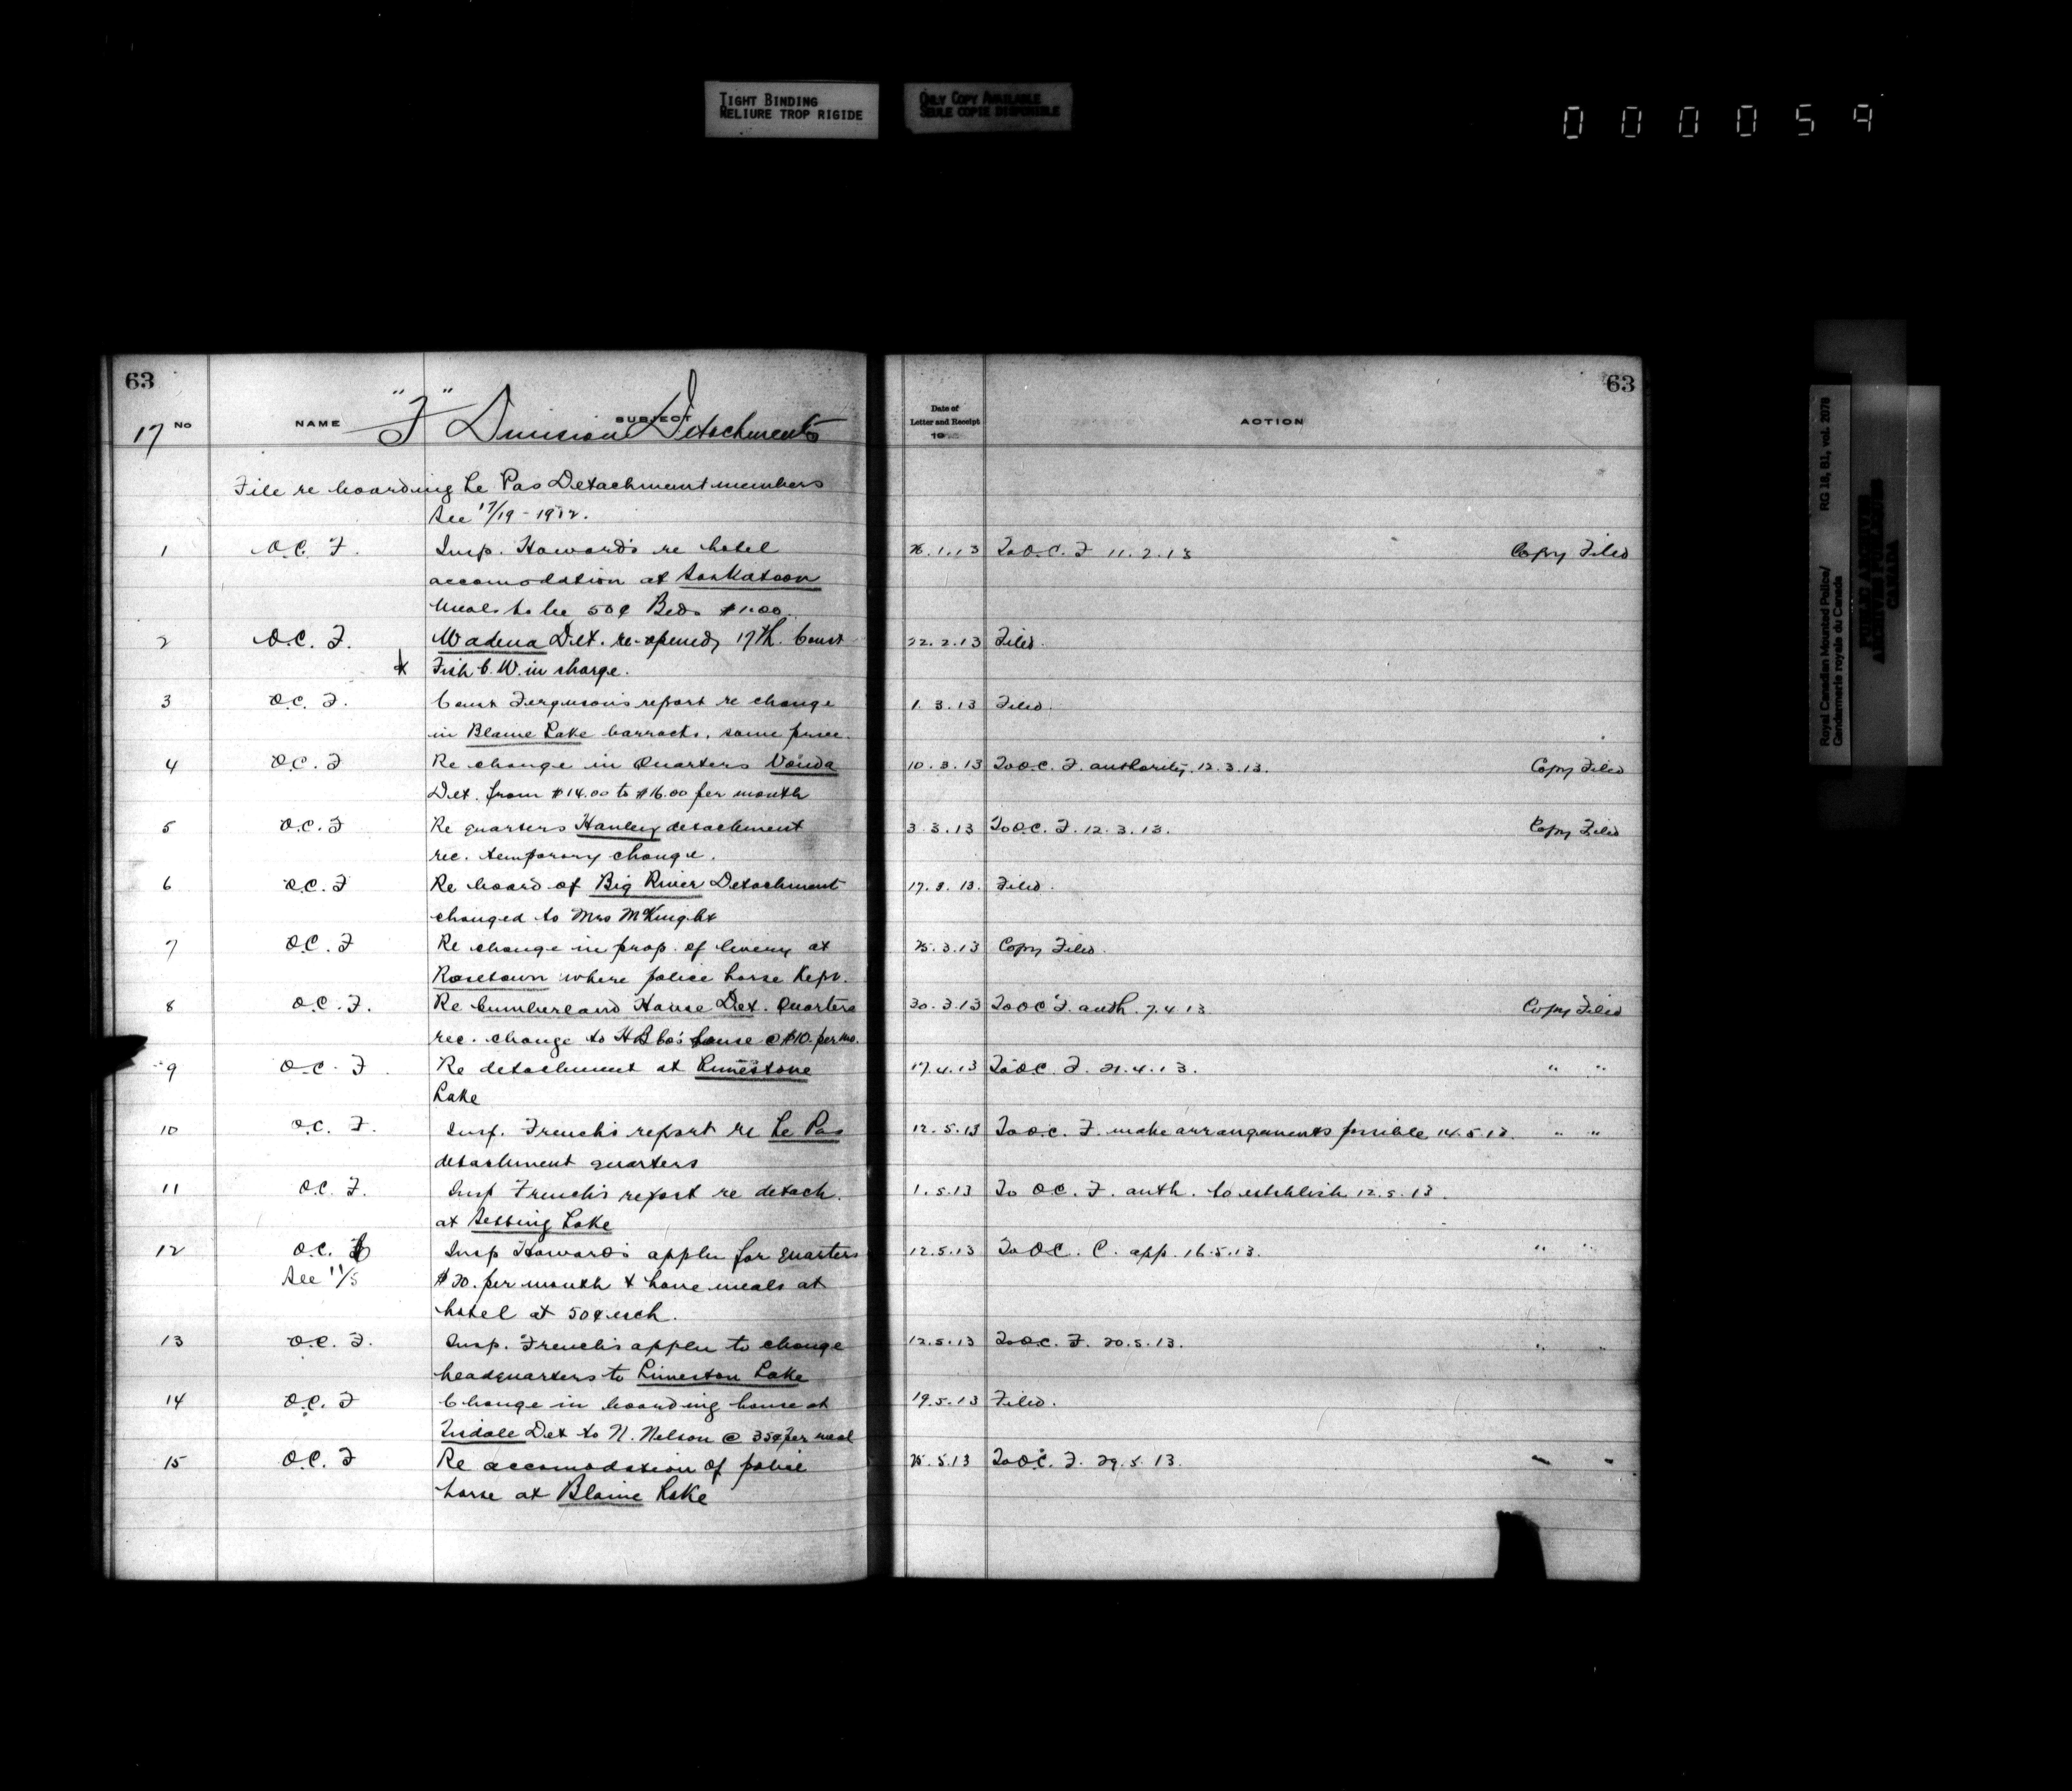 TIGHT BINDING
RELIURE TROP RIGIDE
ONLY COPY AVAILABLE
SEULE COPIE DISPONIBLE
000059
63
17 No NAME SUBJECT
"F" Division Detachments
File re boarding Le Pas Detachment members
See 17/19 - 1912.
1 O.C. F. Insp. Howard's re hotel
accomodation at Saskatoon
Meals to be 50¢ Beds $1.00.
2 O.C. F. Wadena Det. re-opened, 17th. Const
Fish C.W. in charge.
3 O.C. F. Const Ferguson's report re change
in Blaine Lake barracks, same price.
4 O.C. F Re change in Quarters Vonda
Det. from $14.00 to $16.00 per month
5 O.C. F Re quarters Hanley detachment
rec. temporary change.
6 O.C. F Re board of Big River Detachment
changed to Mrs McKnight
7 O.C. F Re change in prop. of livery at
Rosetown where police horse kept.
8 O.C. F. Re Cumberland House Det. Quarters
rec. change to H B Co's house @ $10. per mo.
9 O.C. F Re detachment at Limestone
Lake
10 O.C. F. Insp. French's report re Le Pas
detachment quarters
11 O.C. F. Insp French's report re detach.
at Setting Lake
12 O.C. Insp Howard's appln for quarters
See 11/5 $20. per month & have meals at
hotel at 50¢ each.
13 O.C. F. Insp. French's appln to change
headquarters to Limeston Lake
14 O.C. F Change in boarding house at
Tisdale Det to N. Nelson @ 35¢ per meal
15 O.C. F Re accomodation of police
horse at Blaine Lake
63
Date of
Letter and Receipt
19
ACTION
26.1.13 To O.C. F 11.2.13 Copy Filed
22.2.13 Filed.
1.3.13 Filed.
10.3.13 To O.C. F. authority, 12.3.13. Copy Filed
3.3.13 To O.C. F. 12.3.13. Copy Filed
17.3.13. Filed.
25.3.13 Copy Filed.
30.3.13 To O C F. auth. 7.4.13 Copy Filed
17.4.13 To O.C. F. 21.4.13. " "
12.5.13 To O.C. F. make arrangements possible 14.5.13. " "
1.5.13 To O.C. F. auth. to establish 12.5.13.
12.5.13 To O.C. C. app. 16.5.13. " "
12.5.13 To O.C. F. 20.5.13. " "
19.5.13 Filed.
25.5.13 To O.C. F. 29.5.13. " "
Royal Canadian Mounted Police/ RG 18, B1, vol. 2078
Gendarmerie royale du Canada
PUBLIC ARCHIVES
ARCHIVES PUBLIQUES
CANADA